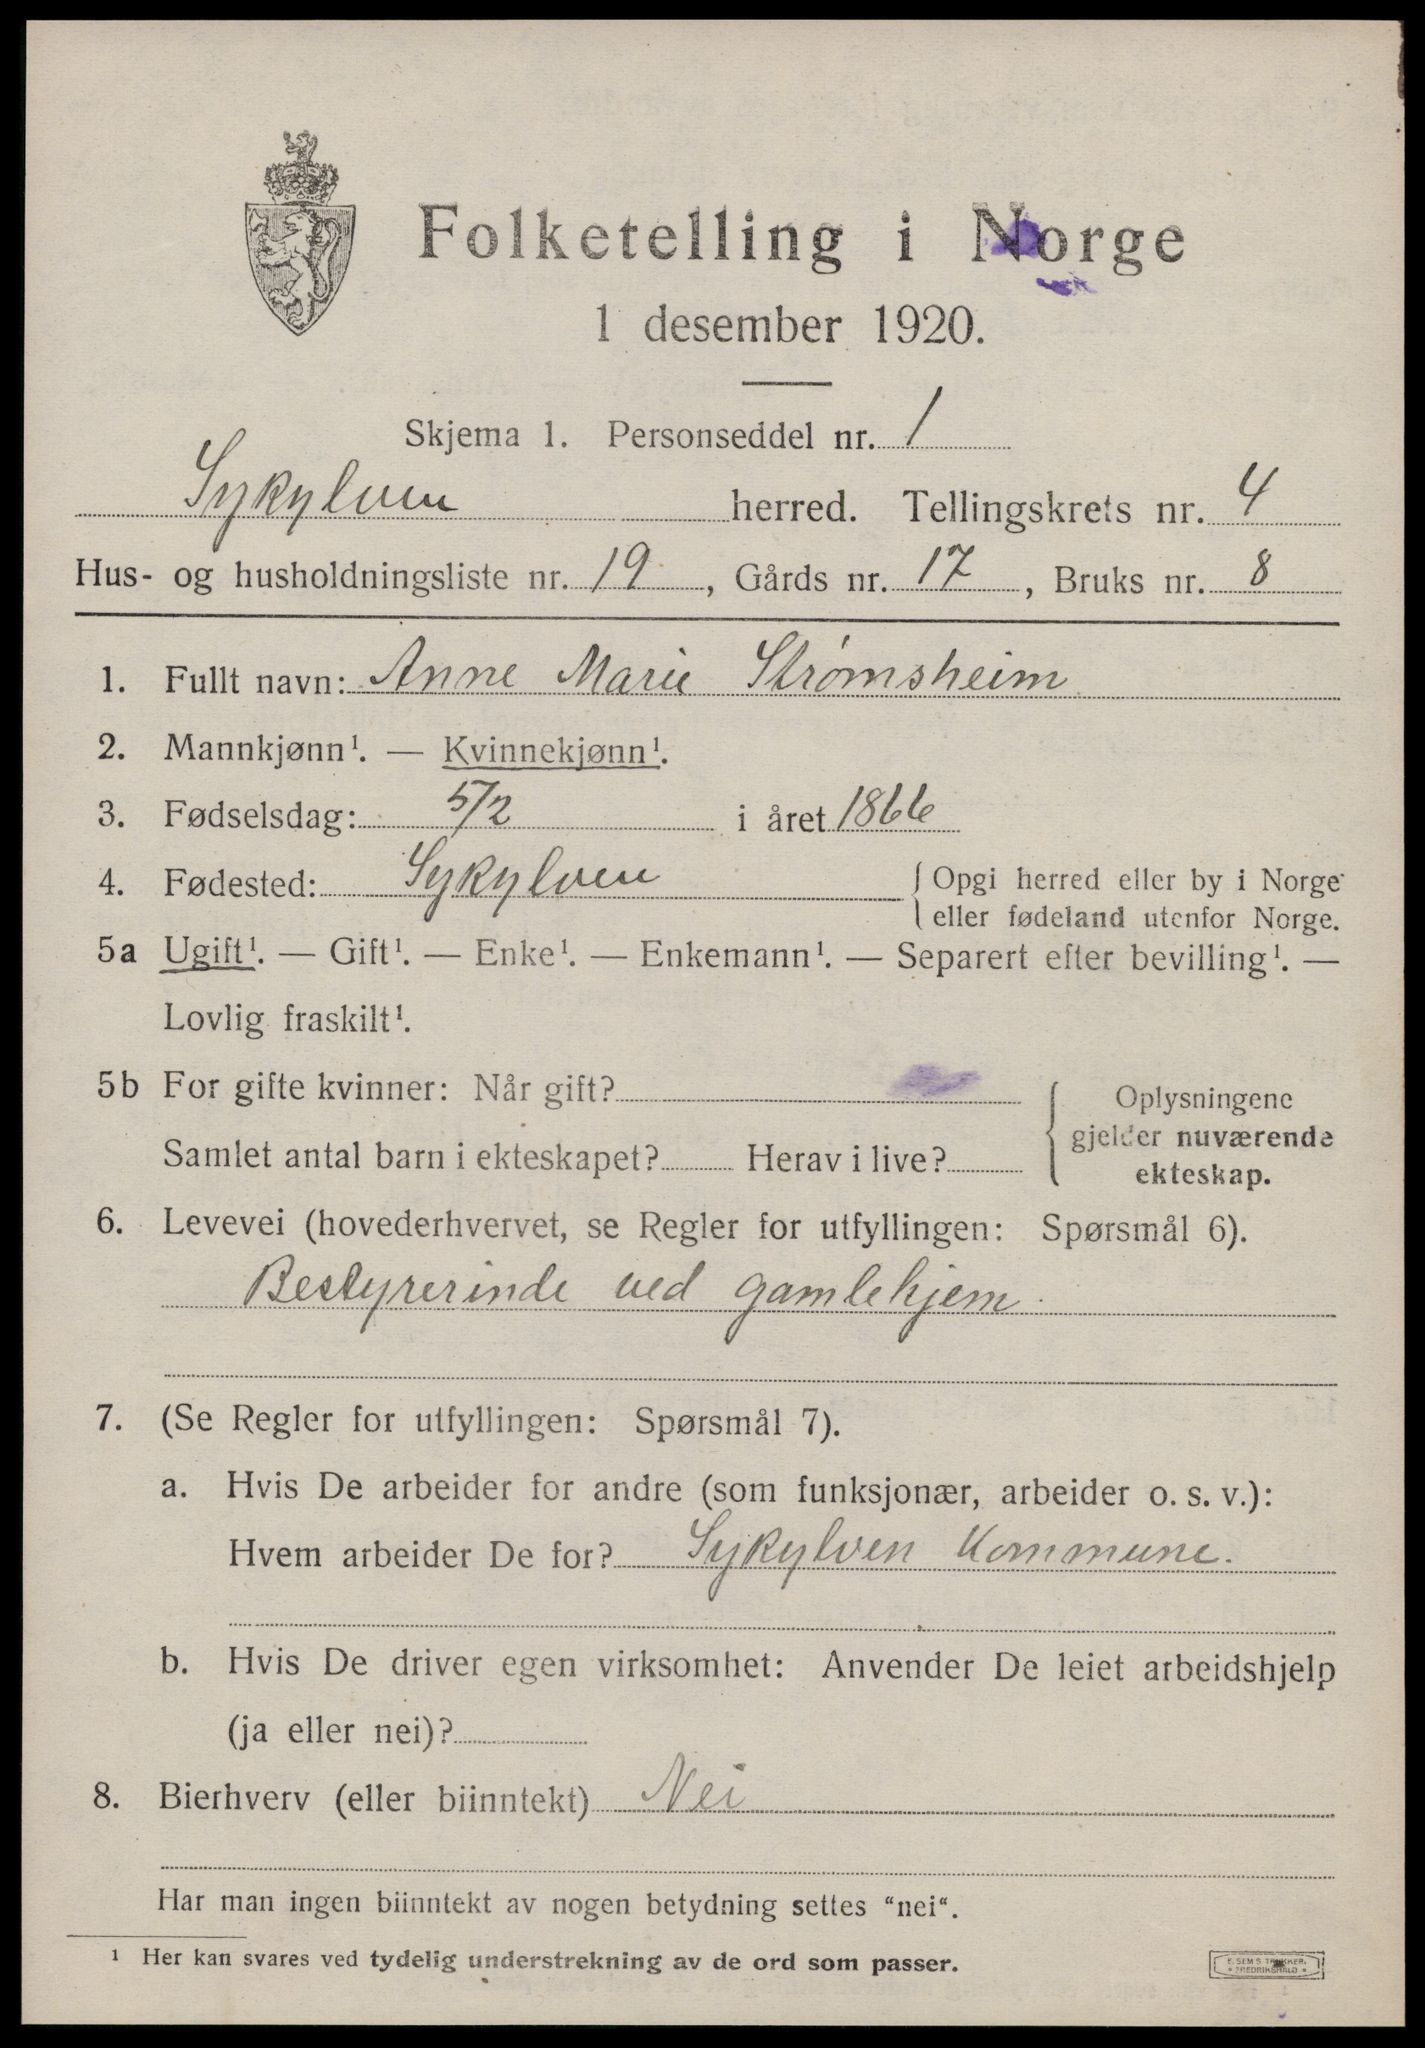 Folketelling i Norge
1 desember 1920.
Skjema 1. Personseddel nr. 1
Sykylven herred. Tellingskrets nr. 4
Hus- og husholdningsliste nr. 19, Gårds nr. 17, Bruks nr. 8
1. Fullt navn: Anne Marie Strømsheim
2. Mannkjønn¹. — Kvinnekjønn¹.
3. Fødselsdag: 5/2 i året 1866
4. Fødested: Sykylven { Opgi herred eller by i Norge
eller fødeland utenfor Norge.
5a Ugift¹. — Gift¹. — Enke¹. — Enkemann¹. — Separert efter bevilling¹. —
Lovlig fraskilt¹.
5b For gifte kvinner: Når gift? { Oplysningene
gjelder nuværende
Samlet antal barn i ekteskapet? Herav i live? ekteskap.
6. Levevei (hovederhvervet, se Regler for utfyllingen: Spørsmål 6).
Bestyrerinde ved gamlehjem.
7. (Se Regler for utfyllingen: Spørsmål 7).
a. Hvis De arbeider for andre (som funksjonær, arbeider o. s. v.):
Hvem arbeider De for? Sykylven Kommune.
b. Hvis De driver egen virksomhet: Anvender De leiet arbeidshjelp
(ja eller nei)?
8. Bierhverv (eller biinntekt) Nei
Har man ingen biinntekt av nogen betydning settes "nei".
¹ Her kan svares ved tydelig understrekning av de ord som passer.
E. SEMS TRYKKERI
FREDRIKSHALD